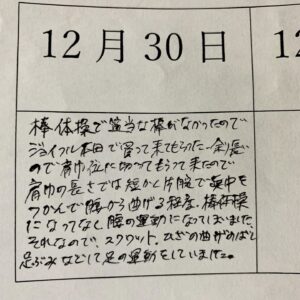 12月30日
1
棒体操で適当な棒がなかったので
ジョイフル本田で買って来てもらった。余り長い
ので肩巾位に切ってもらって来たので
肩巾の長さでは短かく片腕で真中を
つかんで腰から曲げる程度。棒体操
になってなく腰の運動になってしまいました
それなので、スクワット。ひざの曲げのばし
足ぶみなどして足の運動をしていました。